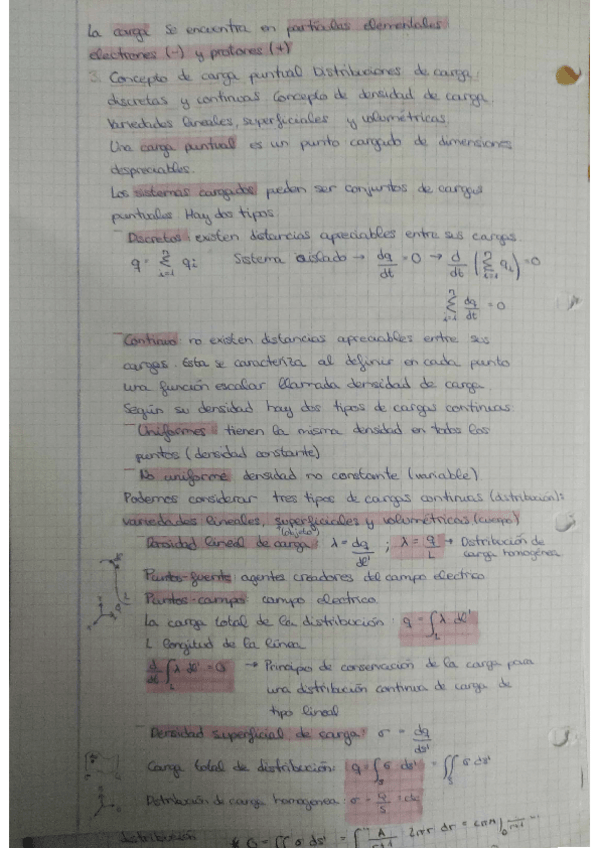 La carga se encuentra en partículas elementales
electrones (-) y protones (+)
3. Concepto de carga puntual Distribuciones de carga:
discretas y continuas Concepto de densidad de carga.
Variedades lineales, superficiales y volumétricas.
Una carga puntual es un punto cargado de dimensiones
despreciables.
Los sistemas cargados pueden ser conjuntos de cargas
puntuales Hay dos tipos
- Discretos: existen distancias apreciables entre sus cargas
q = Σ_{i=1}^{n} q_i Sistema aislado → dq/dt = 0 → d/dt (Σ_{i=1}^{n} q_i) = 0
Σ_{i=1}^{n} dq/dt = 0
- Continuo no existen distancias apreciables entre sus
cargas. Esta se caracteriza al definir en cada punto
una función escalar llamada densidad de carga.
Según su densidad hay dos tipos de cargas continuas
- Uniformes: tienen la misma densidad en todos los
puntos (densidad constante)
- No uniforme densidad no constante (variable)
Podemos considerar tres tipos de cargas continuas (distribución):
variedades lineales, superficiales y volumétricas (cuerpo)
- Densidad lineal de carga: λ = dq/dl' ; λ = q/L → Distribución de
carga homogénea
Puntos-fuente agentes creadores del campo electrico
Puntos-campo: campo electrico
La carga total de la distribución: q = ∫_L λ dl'
L longitud de la línea
d/dt ∫_L λ dl' = 0 → Principio de conservación de la carga para
una distribución continua de carga de
tipo lineal
- Densidad superficial de carga: σ = dq/ds'
Carga total de distribución: q = ∫_S σ ds' = ∬_S σ ds'
Distribución de carga homogenea: σ = Q/S = cte
distribución